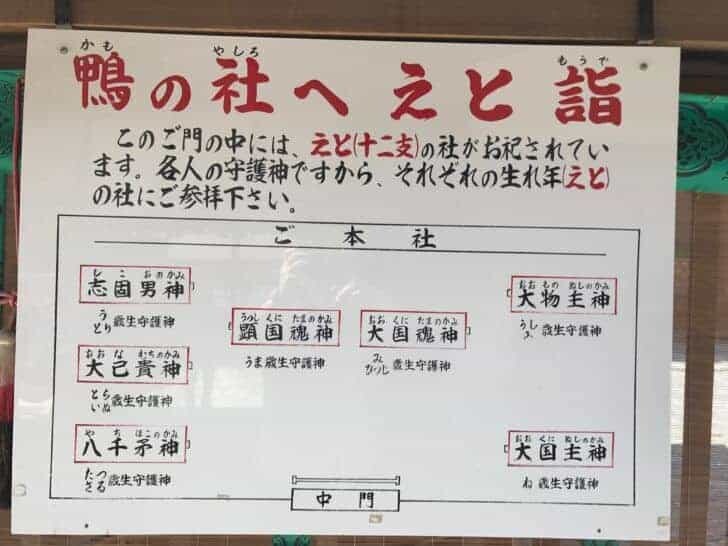 かも やしろ もうで
鴨の社へえと詣
このご門の中には、えと(十二支)の社がお祀されてい
ます。各人の守護神ですから、それぞれの生れ年(えと)
の社にご参拝下さい。
ご本社
しこおのかみ
志固男神
う
とり 歳生守護神
おおなむちのかみ
大己貴神
とら
いぬ 歳生守護神
やちほこのかみ
八千矛神
たつ
さる 歳生守護神
うつしくにたまのかみ
顕国魂神
うま歳生守護神
おおくにたまのかみ
大国魂神
み
ひつじ 歳生守護神
おおものぬしのかみ
大物主神
うし
歳生守護神
おおくにぬしのかみ
大国主神
ね 歳生守護神
中門